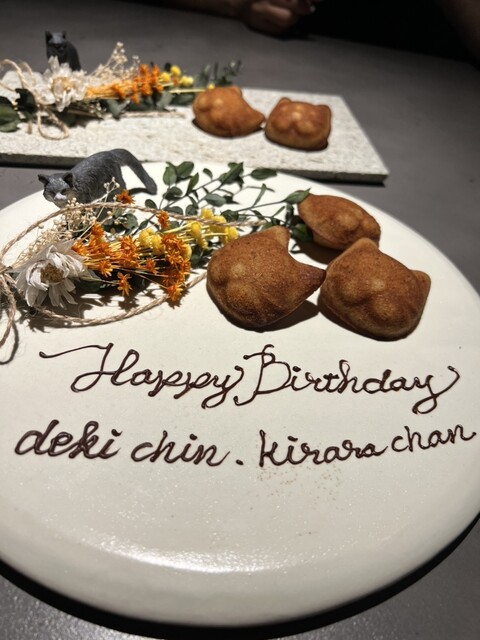 Happy Birthday
deki chin. kirara chan